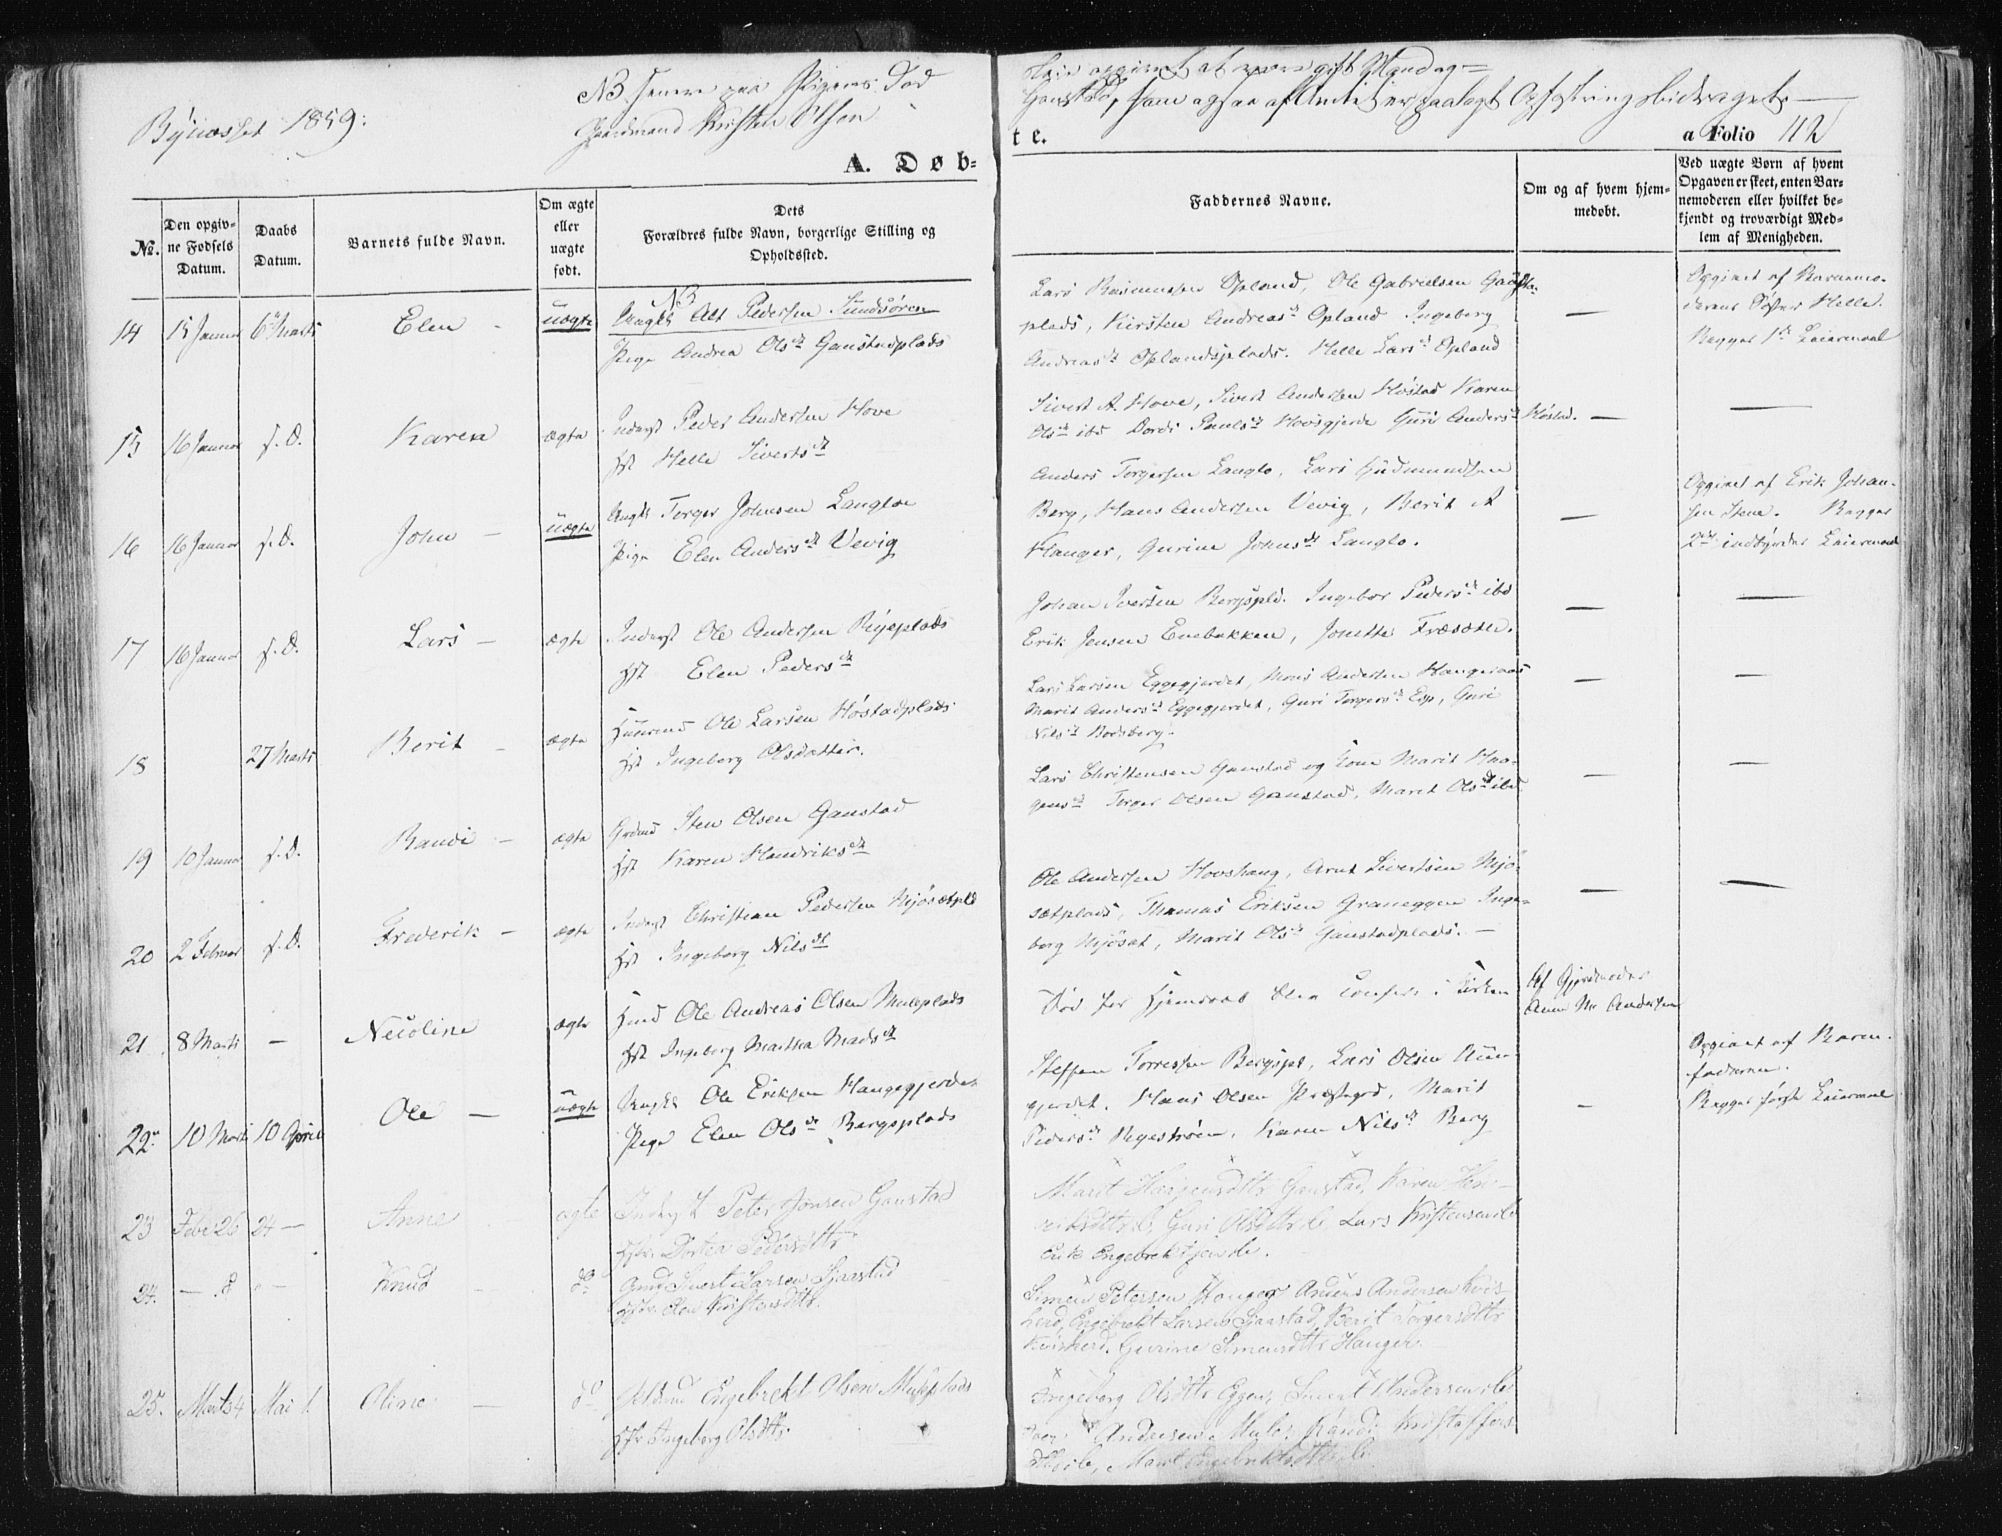 Bynesset 1859.
NB Senere paa Pigens Død
Gaardmand Kristen Olsen
opgivet at være gift Mand og
Ganstad, som ogsaa af Amtet er paalagt Opfostringsbidraget.
A. Døb-
te.
a Folio 42
No.
Den opgiv-
ne Fødsels
Datum.
Daabs
Datum.
Barnets fulde Navn.
Om ægte
eller
uægte
født.
Dets
Forældres fulde Navn, borgerlige Stilling og
Opholdssted.
Faddernes Navne.
Om og af hvem hjem-
medøbt.
Ved uægte Børn af hvem
Opgaven er skeet, enten Bar-
nemoderen eller hvilket be-
kjendt og troværdigt Med-
lem af Menigheden.
14 15 Januar 6te Marts Elen - uægte
NB
Ungk. Alt Pedersen Sundsøren
Pige Andrea Olsdt Ganstadplads
Lars Rasmussen Opland, Ole Gabrielsen Ganstad-
plads, Kirsten Andreasdt Opland Ingeborg
Andreasdt Oplandsplads. Helle Larsdt Opland
—
Opgivet af Barnemo-
derens Søster Helle.
Begges 1ste Leiermaal
15 16 Januar s. D. Karen ægte
Inderst Peder Andersen Hove
Hst Helle Sivertsdt
Sivert A. Hove, Sivert Andersen Høstad Karen
Olsdt ibd Dordi Paulsdt Hovsgjerde Guri Andersdt Høstad. —
—
16 16 Januar s. D. John - uægte
Ungk. Torger Johnsen Langloe
Pige Elen Andersdt Vevig
Anders Torgersen Langlo, Lars Gudmundsen
Berg, Hans Andersen Vevig, Berit A
Hanger, Gurine Johnsdt Langlo.
—
Opgivet af Erik Johan-
sen Stene. Begges
2det indbyrdes Leiermaal
17 16 Januar s. D. Lars - ægte
Inderst Ole Andersen Ryeplads
Hst Elen Pedersdt
Johan Iversen Bergspld. Ingebor Pedersdt ibd
Erik Jensen Enebakken, Jonetta Fræsæter.
—
—
18 27 Marts Berit - ægte
Huusmd Ole Larsen Høstadplads
Hst Ingeborg Olsdatter.
Lars Larsen Eggegjerdet, Mons Andersen Hangeraas
Marit Andersdt Eggegjerdet, Guri Torgersdt Esp, Guri
Nilsdt Bodsberg.
—
—
19 10 Januar s. D. Randi - ægte
Grdmd Sten Olsen Ganstad
Hst Karen Hendriksdt
Lars Christensen Ganstad og Kone Marit Haa-
gensdt Torger Olsen Ganstad, Marit Olsdt ibd
—
—
20 2 Februar s. D. Frederik - ægte
Inderst Christian Pedersen Mjøsætpld
Hst Ingeborg Nilsdt
Ole Andersen Hovshaug, Arnt Sivertsen Mjø-
sætplads, Thomas Eriksen Graneggen Inge-
borg Mjøsæt, Marit Olsdt Ganstadplads. -
—
—
21 8 Marts — Nicoline ægte
Hmd Ole Andreas Olsen Muleplads
Hst Ingeborg Martha Madsdt
Død før Hjemdaab blev confir. i Kirken
Af Gjordmoder
Anne M. Andersen
22 10 Marts 10 April Ole - uægte
Ungk. Ole Eriksen Haugegjerdet
Pige Elen Olsdt Bergsplads
Steffen Torressen Bergspl, Lars Olsen Aun-
gjerdet. Hans Olsen Præstegrd, Marit
Pedersdt Ryestrøen, Karen Nilsdt Berg
—
Opgivet af Barne-
faderen.
Begges første Leiermaal
23 Feb. 26 24 — Anne ægte
Inderst Peter Jonsen Ganstad
Hstr. Dortea Pedersdttr
Marit Haagensdttr Ganstad, Karen Hen-
riksdttr ib, Guri Olsdttr ib Lars Kristensen ib
Erik Engebrektsen ib.
24. — 8 " — Knud - do
Gmd Sivert Larsen Sjaastad
Hstr. Elen Kristensdttr.
Simen Petersen Hanger Anders Andersen Kvis-
herd, Engebrekt Larsen Sjaastad, Berit Torgersdttr
Kvisherd. Gurine Simensdttr Hanger.
25. Marts 4 Mai 1. Oline - do
Hmd Engebrekt Olsen Muleplads
Hstr Ingeborg Olsdttr.
Ingeborg Olsdttr Eggen, Sivert Andersen ib
Andersen Mule, Randi Kristoffers-
dttr ib, Marit Engebrektsdttr ib.